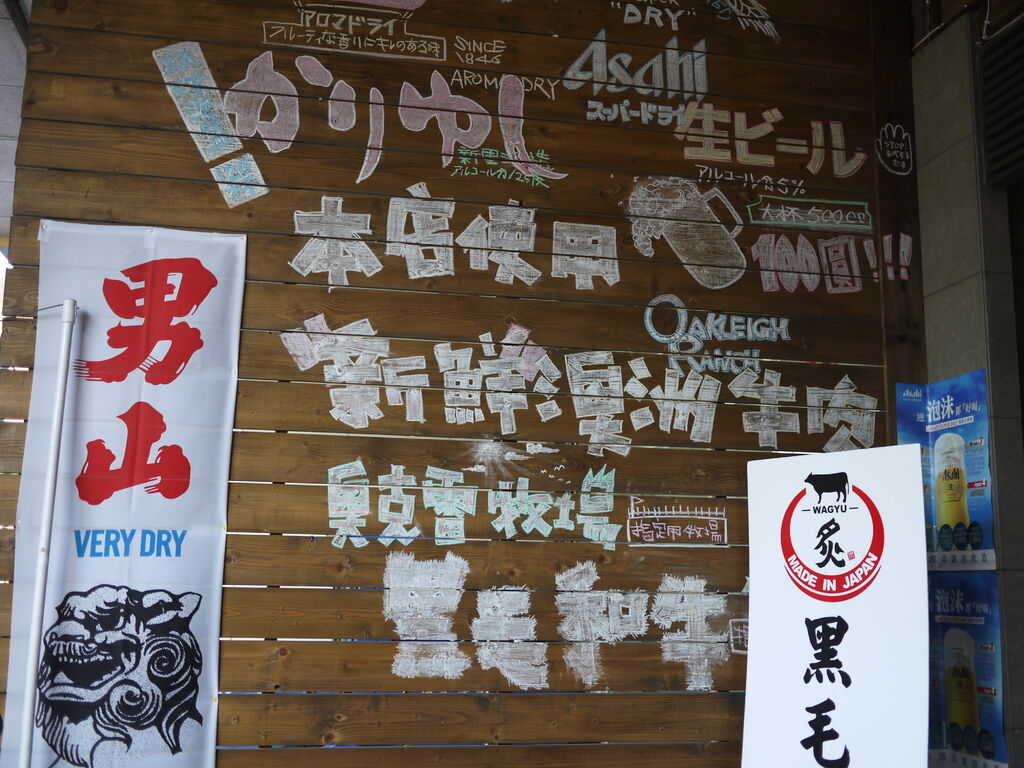 アロマドライ
フルーティな香りにキレのある味
SINCE
1846
AROMA DRY
"DRY"
Asahi
スーパードライ
生ビール
アルコール分5%
かりゆし
アルコール分/25度
本店使用
大杯500cc
100圓!!!
OAKLEIGH
RANCH
新鮮澳洲牛肉
奧克雷牧場
指定用牧場
黑毛和牛
男山
VERY DRY
WAGYU
炙
MADE IN JAPAN
黑毛
Asahi
泡沫都「好喝」
泡沫都「好喝」